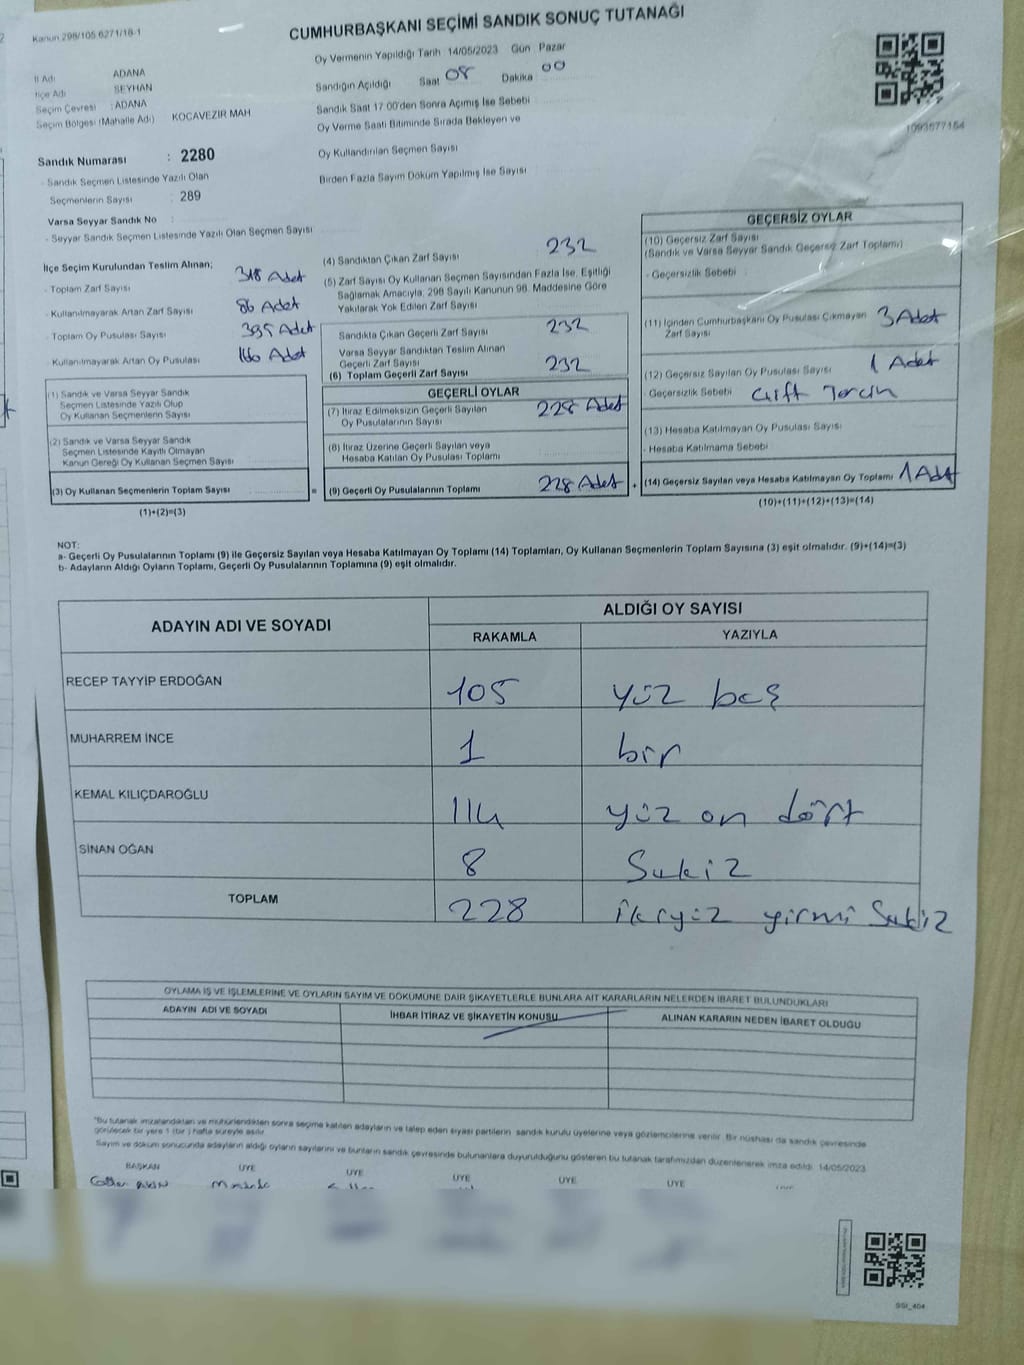 Kanun 298/105 6271/18-1
CUMHURBAŞKANI SEÇİMİ SANDIK SONUÇ TUTANAĞI
Oy Vermenin Yapıldığı Tarih : 14/05/2023 Gün Pazar
İl Adı ADANA
İlçe Adı SEYHAN
Seçim Çevresi : ADANA
Seçim Bölgesi (Mahalle Adı) KOCAVEZIR MAH
Sandığın Açıldığı Saat 08 Dakika 00
Sandık Saat 17.00'den Sonra Açımış İse Sebebi
Oy Verme Saati Bitiminde Sırada Bekleyen ve
Oy Kullandırılan Seçmen Sayısı
Birden Fazla Sayım Döküm Yapılmış İse Sayısı
1093577154
Sandık Numarası : 2280
- Sandık Seçmen Listesinde Yazılı Olan
Seçmenlerin Sayısı : 289
Varsa Seyyar Sandık No :
- Seyyar Sandık Seçmen Listesinde Yazılı Olan Seçmen Sayısı
İlçe Seçim Kurulundan Teslim Alınan;
- Toplam Zarf Sayısı 318 Adet
- Kullanılmayarak Artan Zarf Sayısı 86 Adet
- Toplam Oy Pusulası Sayısı 395 Adet
- Kullanılmayarak Artan Oy Pusulası 166 Adet
(1) Sandık ve Varsa Seyyar Sandık
Seçmen Listesinde Yazılı Olup
Oy Kullanan Seçmenlerin Sayısı
(2) Sandık ve Varsa Seyyar Sandık
Seçmen Listesinde Kayıtlı Olmayan
Kanun Gereği Oy Kullanan Seçmen Sayısı
(3) Oy Kullanan Seçmenlerin Toplam Sayısı
(1)+(2)=(3)
(4) Sandıktan Çıkan Zarf Sayısı 232
(5) Zarf Sayısı Oy Kullanan Seçmen Sayısından Fazla İse, Eşitliği
Sağlamak Amacıyla, 298 Sayılı Kanunun 98. Maddesine Göre
Yakılarak Yok Edilen Zarf Sayısı
Sandıkta Çıkan Geçerli Zarf Sayısı 232
Varsa Seyyar Sandıktan Teslim Alınan
Geçerli Zarf Sayısı
(6) Toplam Geçerli Zarf Sayısı 232
GEÇERLİ OYLAR
(7) İtiraz Edilmeksizin Geçerli Sayılan
Oy Pusulalarının Sayısı 228 Adet
(8) İtiraz Üzerine Geçerli Sayılan veya
Hesaba Katılan Oy Pusulası Toplamı
= (9) Geçerli Oy Pusulalarının Toplamı 228 Adet +
GEÇERSİZ OYLAR
(10) Geçersiz Zarf Sayısı
(Sandık ve Varsa Seyyar Sandık Geçersiz Zarf Toplamı)
- Geçersizlik Sebebi
(11) İçinden Cumhurbaşkanı Oy Pusulası Çıkmayan
Zarf Sayısı 3 Adet
(12) Geçersiz Sayılan Oy Pusulası Sayısı 1 Adet
- Geçersizlik Sebebi Çift Tercih
(13) Hesaba Katılmayan Oy Pusulası Sayısı
- Hesaba Katılmama Sebebi
(14) Geçersiz Sayılan veya Hesaba Katılmayan Oy Toplamı 1 Adet
(10)+(11)+(12)+(13)=(14)
NOT:
a- Geçerli Oy Pusulalarının Toplamı (9) ile Geçersiz Sayılan veya Hesaba Katılmayan Oy Toplamı (14) Toplamları, Oy Kullanan Seçmenlerin Toplam Sayısına (3) eşit olmalıdır. (9)+(14)=(3)
b- Adayların Aldığı Oyların Toplamı, Geçerli Oy Pusulalarının Toplamına (9) eşit olmalıdır.
ADAYIN ADI VE SOYADI ALDIĞI OY SAYISI
RAKAMLA YAZIYLA
RECEP TAYYİP ERDOĞAN 105 yüz beş
MUHARREM İNCE 1 bir
KEMAL KILIÇDAROĞLU 114 yüz on dört
SİNAN OĞAN 8 Sekiz
TOPLAM 228 ikiyüz yirmi Sekiz
OYLAMA İŞ VE İŞLEMLERİNE VE OYLARIN SAYIM VE DÖKÜMÜNE DAİR ŞİKAYETLERLE BUNLARA AİT KARARLARIN NELERDEN İBARET BULUNDUKLARI
ADAYIN ADI VE SOYADI İHBAR İTİRAZ VE ŞİKAYETİN KONUSU ALINAN KARARIN NEDEN İBARET OLDUĞU
*Bu tutanak imzalandıktan ve mühürlendikten sonra seçime katılan adayların ve talep eden siyasi partilerin sandık kurulu üyelerine veya gözlemcilerine verilir. Bir nüshası da sandık çevresinde
görülecek bir yere 1 (bir ) hafta süreyle asılır.
Sayım ve döküm sonucunda adayların aldığı oyların sayılarını ve bunların sandık çevresinde bulunanlara duyurulduğunu gösteren bu tutanak tarafımızdan düzenlenerek imza edildi. 14/05/2023
BAŞKAN ÜYE ÜYE ÜYE ÜYE ÜYE
SSI_404